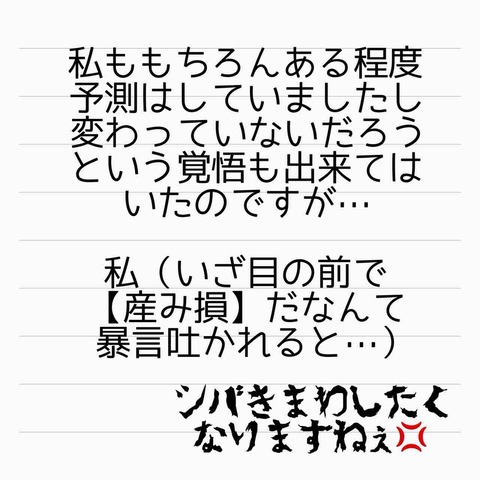 私ももちろんある程度
予測はしていましたし
変わっていないだろう
という覚悟も出来ては
いたのですが…
私（いざ目の前で
【産み損】だなんて
暴言吐かれると…）
シバきまわしたく
なりますねぇ💢